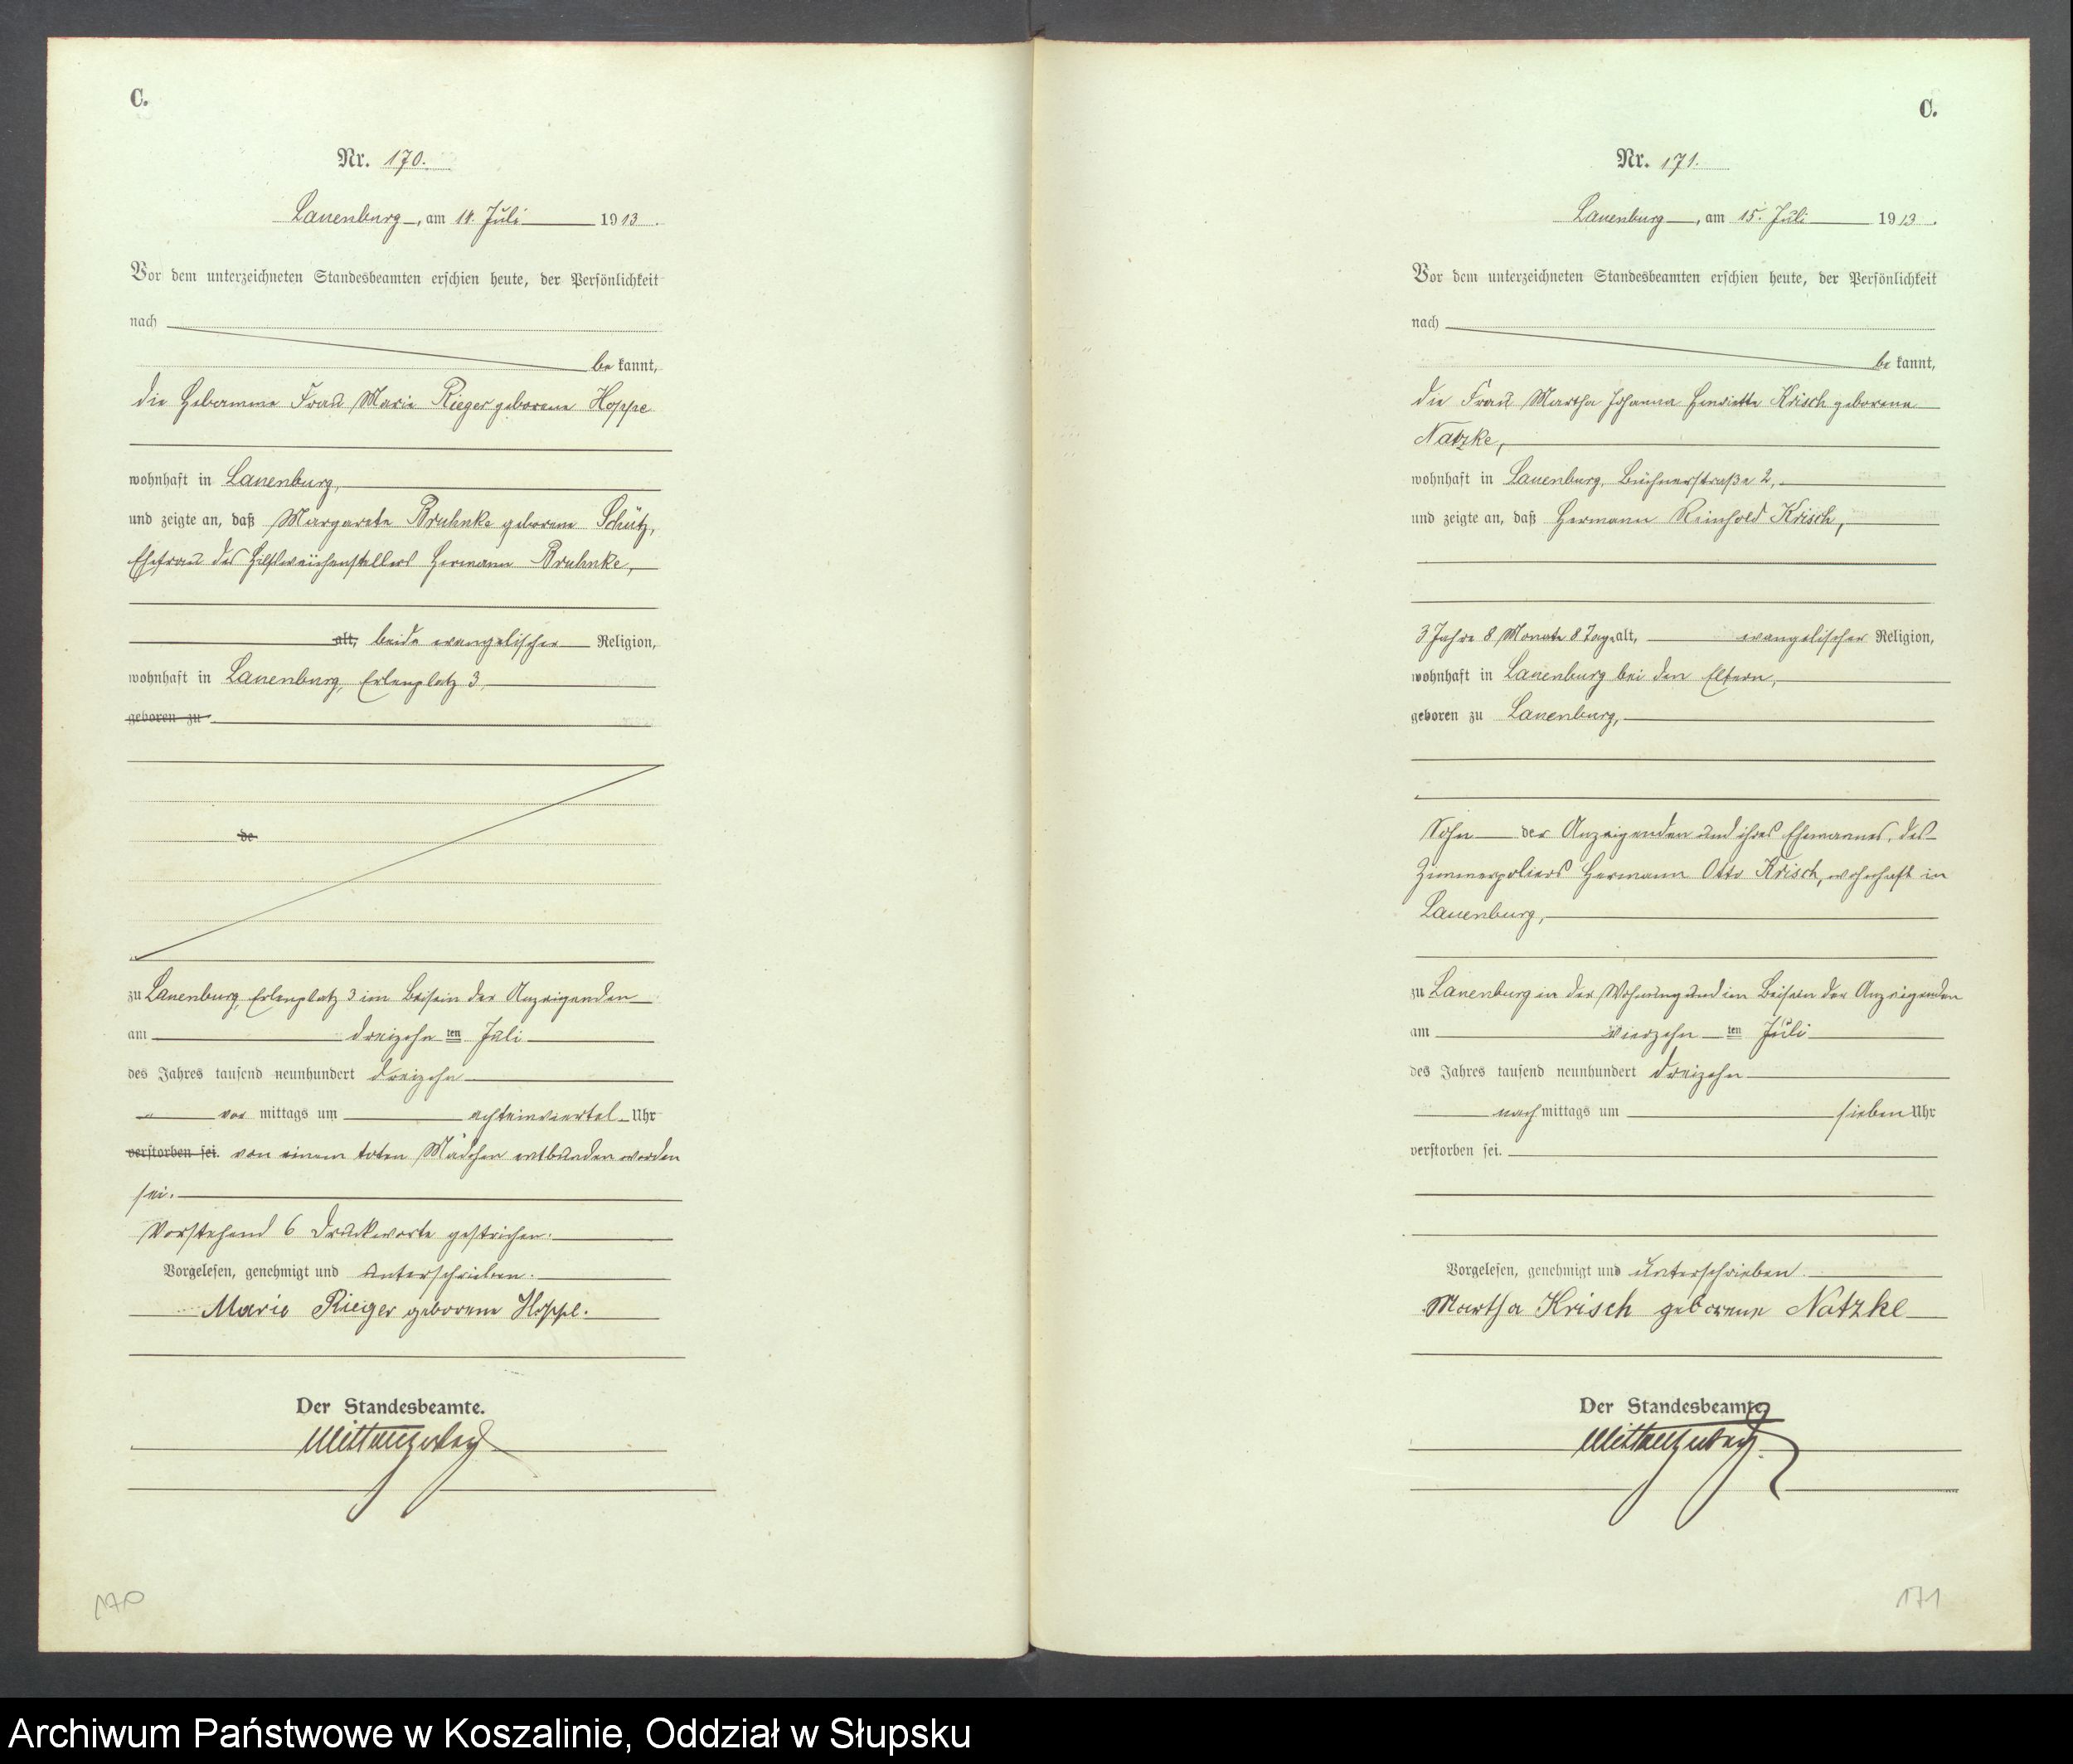 C.
Nr. 170.
Lauenburg, am 14. Juli 1913.
Vor dem unterzeichneten Standesbeamten erschien heute, der Persönlichkeit
nach
bekannt,
die Hebamme Frau Marie Rieger geborene Hoppe
wohnhaft in Lauenburg,
und zeigte an, daß Margarete Bruhnke geborene Schütz,
Ehefrau des Hilfsweichenstellers Hermann Bruhnke,
alt, beide evangelischer Religion,
wohnhaft in Lauenburg, Erlenplatz 3,
geboren zu
de
zu Lauenburg, Erlenplatz 3 im Beisein der Anzeigenden
am dreizehn ten Juli
des Jahres tausend neunhundert dreizehn
vor mittags um achteinviertel Uhr
verstorben sei. von einem toten Mädchen entbunden worden
sei.
Vorstehend 6 Druckworte gestrichen.
Vorgelesen, genehmigt und unterschrieben.
Marie Rieger geborene Hoppe.
Der Standesbeamte.
170
C.
Nr. 171.
Lauenburg, am 15. Juli 1913.
Vor dem unterzeichneten Standesbeamten erschien heute, der Persönlichkeit
nach
bekannt,
die Frau Martha Johanna Henriette Krisch geborene
Natzke,
wohnhaft in Lauenburg, Büchnerstraße 2,
und zeigte an, daß Hermann Reinhold Krisch,
3 Jahre 8 Monate 8 Tage alt, evangelischer Religion,
wohnhaft in Lauenburg bei den Eltern,
geboren zu Lauenburg,
Sohn der Anzeigenden und ihres Ehemannes, des
Zimmerpoliers Hermann Otto Krisch, wohnhaft in
Lauenburg,
zu Lauenburg in der Wohnung und im Beisein der Anzeigenden
am vierzehn ten Juli
des Jahres tausend neunhundert dreizehn
nach mittags um sieben Uhr
verstorben sei.
Vorgelesen, genehmigt und unterschrieben.
Martha Krisch geborene Natzke
Der Standesbeamte.
171
Archiwum Państwowe w Koszalinie, Oddział w Słupsku